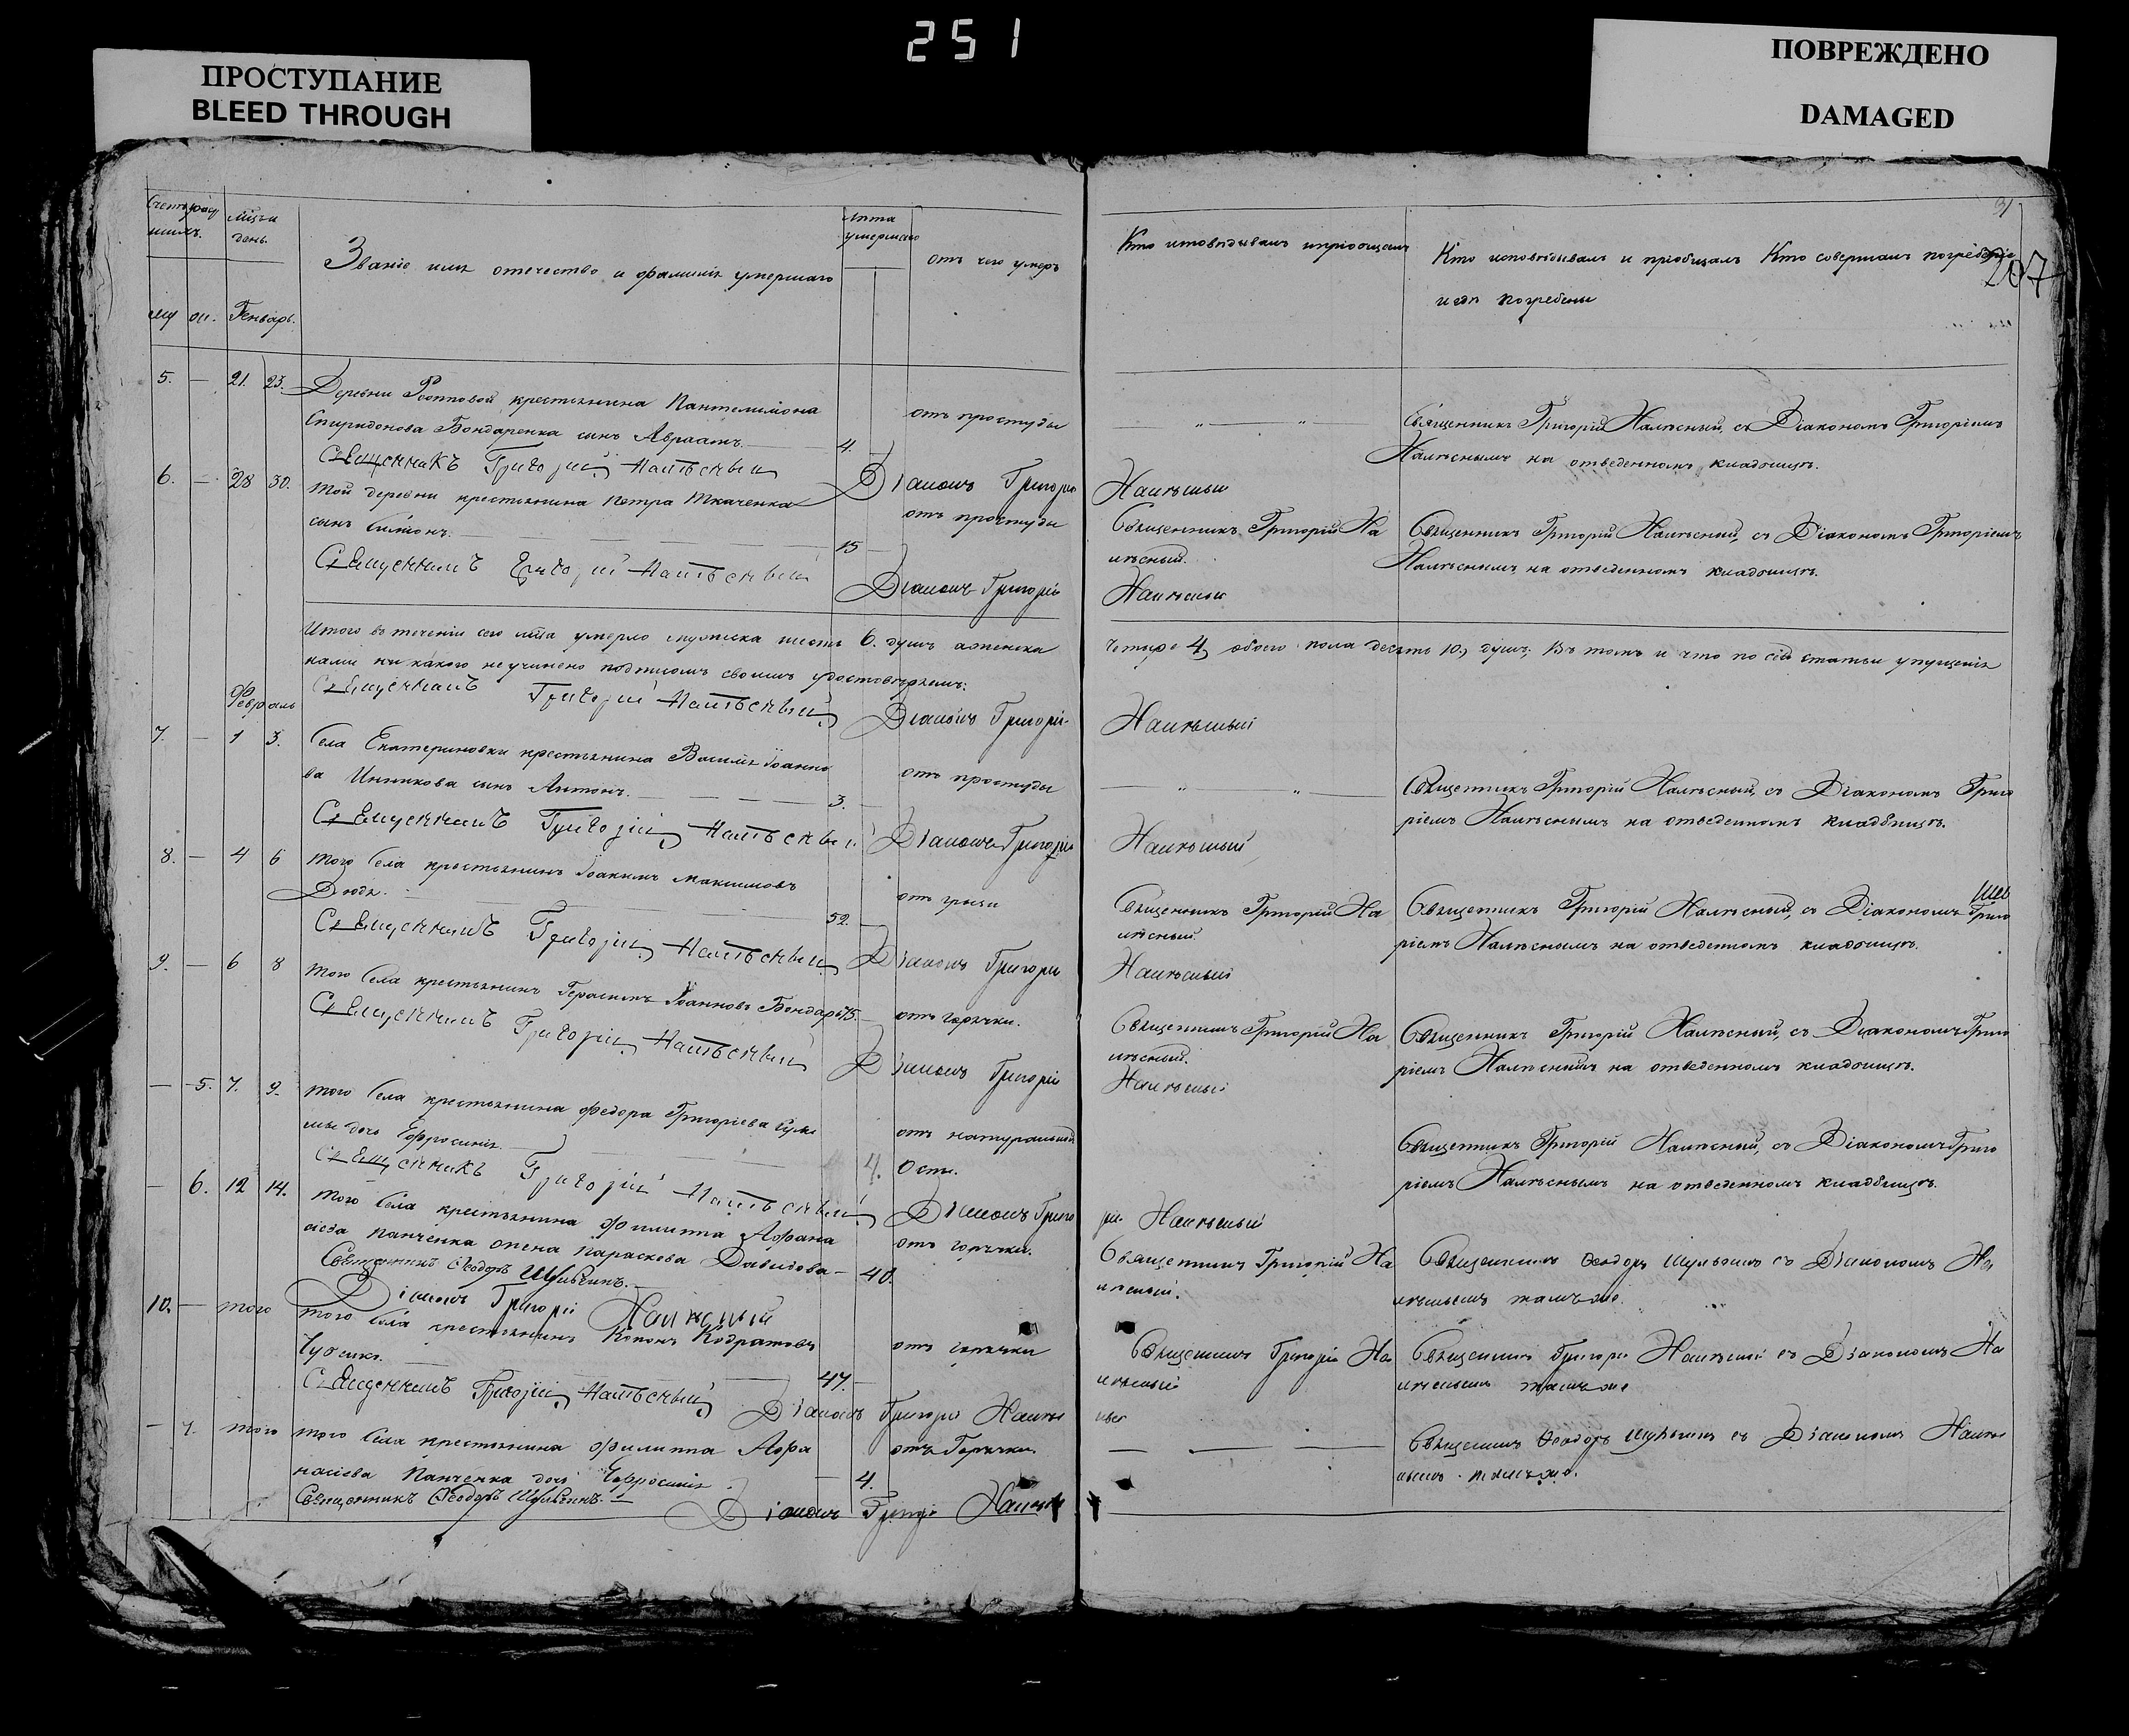 251
ПРОСТУПАНИЕ
BLEED THROUGH
ПОВРЕЖДЕНО
DAMAGED
31
207
Счетъ умер
шихъ.
Мцъ и
день.
Званіе имя отечество и фамилія умершаго
Лѣта
умершаго
отъ чего умеръ
Кто исповѣдывалъ и пріобщалъ
Кто исповѣдывалъ и пріобщалъ Кто совершалъ погребеніе
и гдѣ погребены
Генварь.
5. — 21. 23. Деревни крестьянина Пантелимона
Спиридонова Бондаренка сынъ Авраамъ. 4.
отъ простуды
Священникъ Григорій Налѣсный, съ Діакономъ Григоріемъ
Налѣснымъ на отведенномъ кладбищѣ.
Священникъ Григорій Налѣсный
Діаконъ Григорій Налѣсный
6. — 28 30. Той деревни крестьянина Петра Ткаченка
сынъ Симіонъ. 15
отъ простуды
Священникъ Григорій На
лѣсный.
Священникъ Григорій Налѣсный, съ Діакономъ Григоріемъ
Налѣснымъ на отведенномъ кладбищѣ.
Священникъ Григорій Налѣсный
Діаконъ Григорій Налѣсный
Итого въ теченіи сего умерло мужеска шесть 6. душъ а женска четыре 4, обоего пола десять 10, душъ; Въ томъ и что по сей статьи упущенія
нами ни какого не учинено подписомъ своимъ удостовѣряемъ:
Священникъ Григорій Налѣсный Діаконъ Григорій Налѣсный
Февраль
7. — 1 3. Села Екатериновки крестьянина Василія Іоанно
ва сынъ Антонъ. 3.
отъ простуды
Священникъ Григорій Налѣсный, съ Діакономъ Григо
ріемъ Налѣснымъ на отведенномъ кладбищѣ.
Священникъ Григорій Налѣсный Діаконъ Григорій Налѣсный
8. — 4 6 Того Села крестьянинъ Іоакимъ Максимовъ
Дюдя. 52.
Священникъ Григорій На
лѣсный.
Священникъ Григорій Налѣсный, съ Діакономъ Григо
ріемъ Налѣснымъ на отведенномъ кладбищѣ.
Священникъ Григорій Налѣсный Діаконъ Григорій Налѣсный
9. — 6 8 Того Села крестьянинъ Герасимъ Іоанновъ Бондарь 75.
отъ горячки.
Священникъ Григорій На
лѣсный.
Священникъ Григорій Налѣсный, съ Діакономъ Григо
ріемъ Налѣснымъ на отведенномъ кладбищѣ.
Священникъ Григорій Налѣсный Діаконъ Григорій Налѣсный
— 5. 7. 9. Того Села крестьянина Федора Григоріева
дочь Ефросинія. 4.
отъ натуральной
Оспы.
Священникъ Григорій Налѣсный, съ Діакономъ Григо
ріемъ Налѣснымъ на отведенномъ кладбищѣ.
Священникъ Григорій Налѣсный Діаконъ Григорій Налѣсный
— 6. 12 14. Того Села крестьянина Филиппа Афана
сіева Панченка жена Параскева Давидова 40.
отъ горячки.
Священникъ Григорій На
лѣсный.
Священникъ Ѳеодоръ Шульгинъ съ Діакономъ На
лѣснымъ тамъ же.
Священникъ Ѳеодоръ Шульгинъ.
Діаконъ Григорій Налѣсный
10. — того Того Села крестьянинъ Кононъ Кодратовъ
47.
отъ горячки
Священникъ Григорій На
лѣсный
Священникъ Григорій Налѣсный съ Діакономъ На
лѣснымъ тамъ же
Священникъ Григорій Налѣсный Діаконъ Григорій Налѣсный
— 7. того Того Села крестьянина Филиппа Афа
насіева Панченка дочь Ефросинія 4.
отъ Горячки.
Священникъ Ѳеодоръ Шульгинъ съ Діакономъ Налѣ
снымъ тамъ же.
Священникъ Ѳеодоръ Шульгинъ.
Діаконъ Григорій Налѣсный